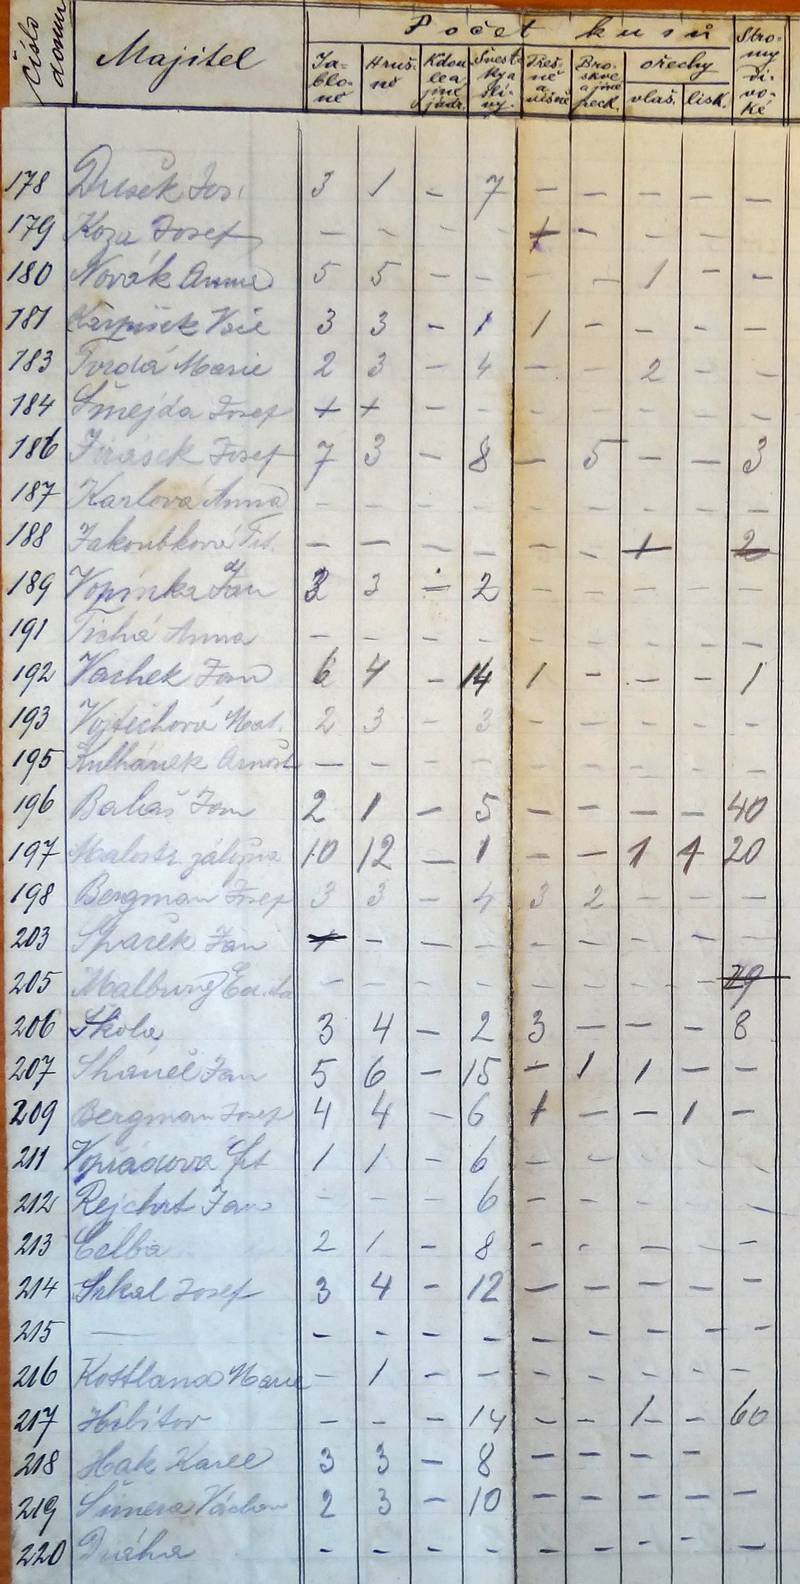 Číslo domu Majitel Počet kusů
Jabloně Hrušně Kdoule a jiné jádr. Švestky a slívy Třešně a višně Broskve a jiné peck. ořechy vlaš. lísk. Stromy divoké
178 Dusek Jos. 3 1 - 7 - - - - -
179 Koza Josef - - - - + - - - -
180 Novák Anna 5 5 - - - - 1 - -
181 3 3 - 1 1 - - - -
183 Tvrdá Marie 2 3 - 4 - - 2 - -
184 Šmejda Josef + + - - - - - - -
186 Jirásek Josef 7 3 - 8 - 5 - - 3
187 Karlová Anna - - - - - - - - -
188 Jakoubková - - - - - - 1 - 2
189 Vopinka Jan 3 3 - 2 - - - - -
191 Tichá Anna - - - - - - - - -
192 Vachek Jan 6 4 - 14 1 - - - 1
193 Vojtěchová 2 3 - 3 - - - - -
195 Kulhánek Arnošt - - - - - - - - -
196 Jan 2 1 - 5 - - - - 40
197 10 12 - 1 - - 1 1 20
198 Bergman Josef 3 3 - 4 3 2 - - -
203 Jan + - - - - - - - -
205 - - - - - - - -
206 Škola 3 4 - 2 3 - - - 8
207 Jan 5 6 - 15 - 1 1 - -
209 Bergman Josef 4 4 - 6 1 - - 1 -
211 1 1 - 6 - - - - -
212 Rejchrt Jan - - - 6 - - - - -
213 Celba 2 1 - 8 - - - - -
214 Josef 3 4 - 12 - - - - -
215 — - - - - - - - - -
216 - 1 - - - - - - -
217 Hřbitov - - - 14 - - 1 - 60
218 Hak Karel 3 3 - 8 - - - -
219 Šimera Václav 2 3 - 10 - - - - -
220 Dráha - - - - - - - - -